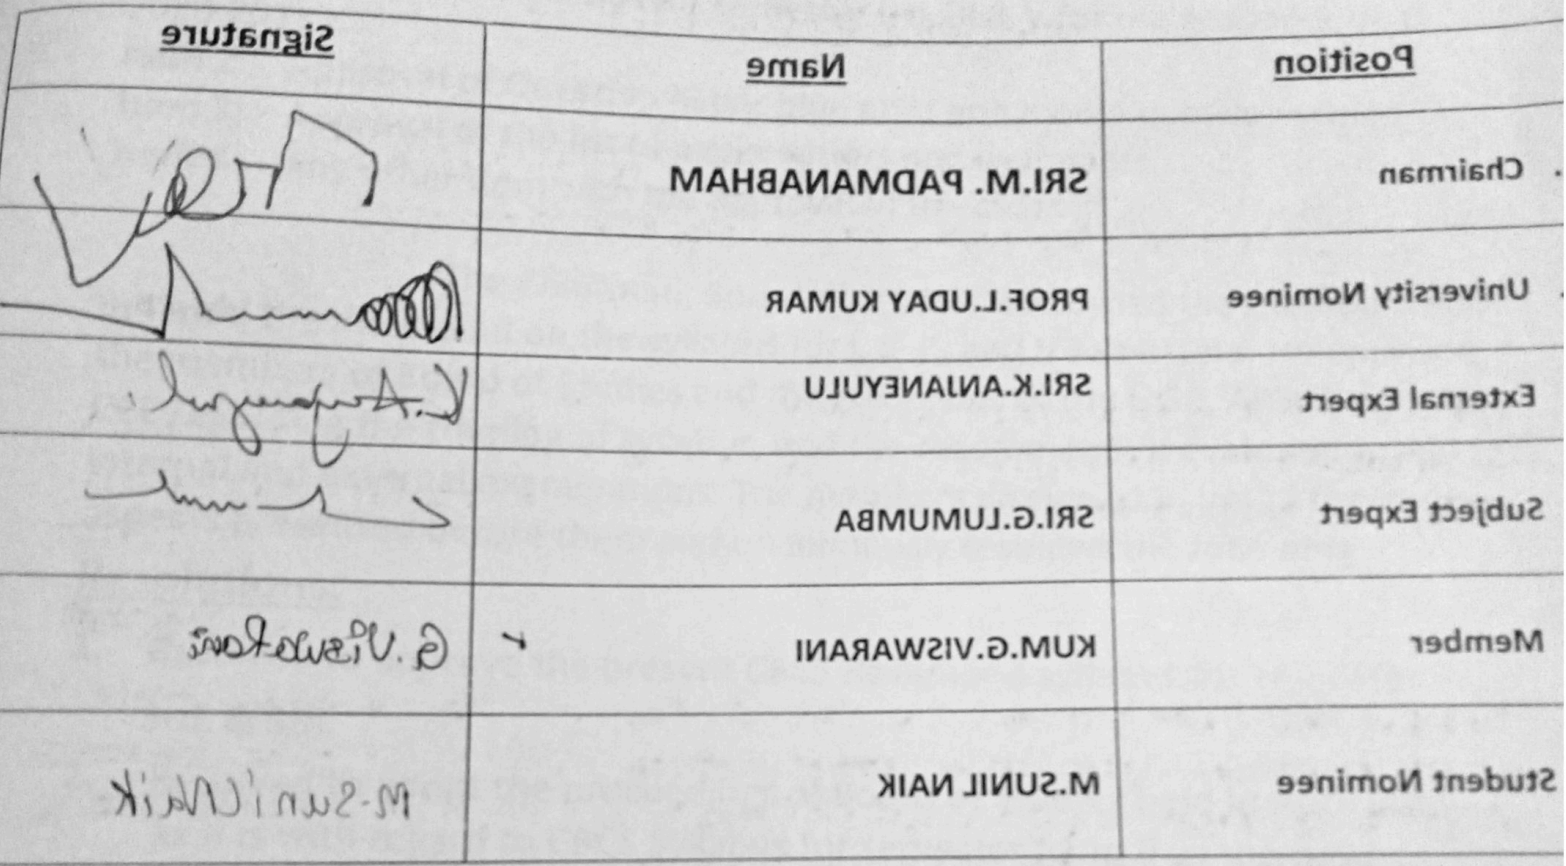 Position Name Signature
Chairman SRI.M. PADMANABHAM
University Nominee PROF.L.UDAY KUMAR
External Expert SRI.K.ANJANEYULU K.Anjaneyulu
Subject Expert SRI.G.LUMUMBA
Member KUM.G.VISWARANI G.Viswarani
Student Nominee M.SUNIL NAIK M.Sunil Naik